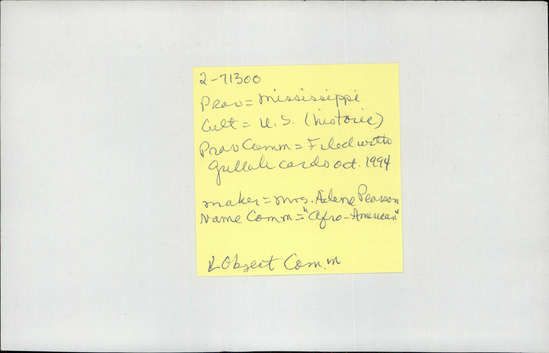 2-71300
Prov = Mississippi
Cult = U.S. (historic)
Prov Comm = Filed with
Gullah cards Oct. 1994
maker = Mrs. Adene Pearson
Name Comm = "Afro-American"
& Object Comm